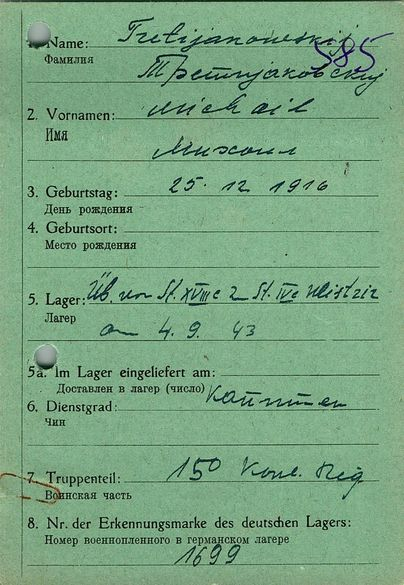 1. Name: Tretijakowskij 585
Фамилия Третьяковский
2. Vornamen: Michail
Имя
Михаил
3. Geburtstag: 25. 12 1916
День рождения
4. Geburtsort:
Место рождения
5. Lager: Üb. von St. XVIII c z St. IV c Wistriz
Лагер am 4. 9. 43
5a. Im Lager eingeliefert am:
Доставлен в лагер (число)
6. Dienstgrad:
Чин
7. Truppenteil: 150
Воинская часть
8. Nr. der Erkennungsmarke des deutschen Lagers:
Номер военнопленного в германском лагере
1699